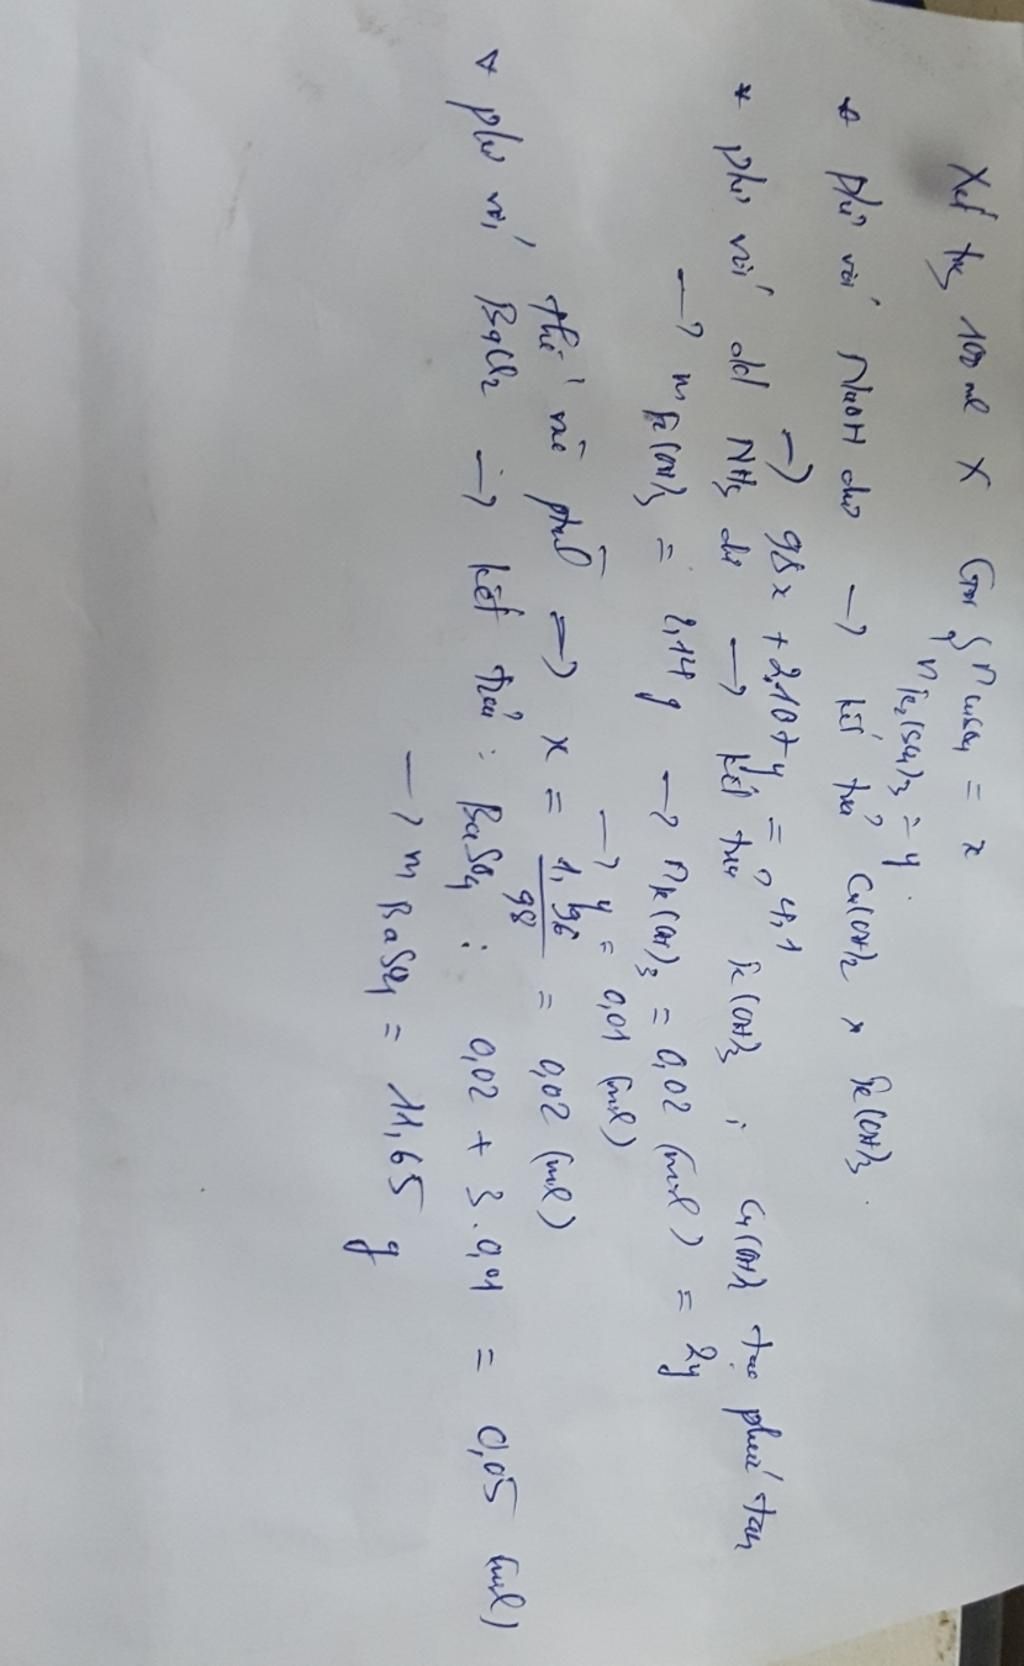 Xét trg 100 ml X Gọi { nCuSO4 = x
nFe2(SO4)3 = y.
* phứ với NaOH dư → kết tủa Cu(OH)2 x Fe(OH)3.
→ 98x + 2.107y = 4,1
* phứ với dd NH3 dư → kết tủa Fe(OH)3 ; Cu(OH)2 tạo phức tan
→ mFe(OH)3 = 2,14 g → nFe(OH)3 = 0,02 (mol) = 2y
→ y = 0,01 (mol)
thế vào → x = 1,96/98 = 0,02 (mol)
* phứ với BaCl2 → kết tủa : BaSO4 : 0,02 + 3.0,01 = 0,05 (mol)
→ mBaSO4 = 11,65 g